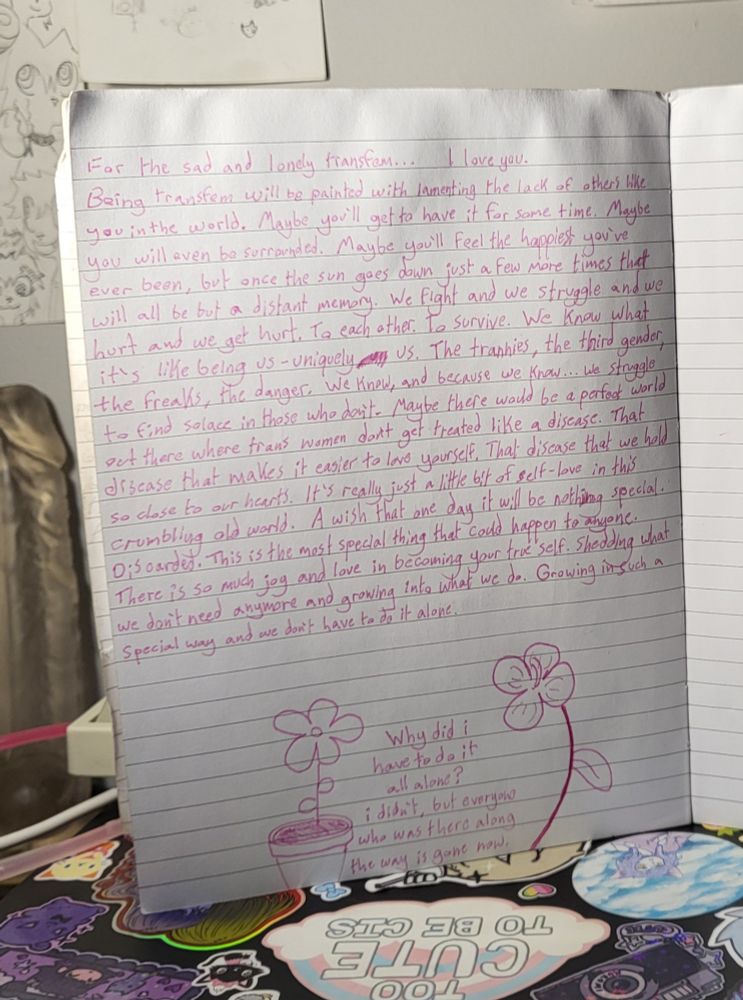 For the sad and lonely transfem... I love you.
Being transfem will be painted with lamenting the lack of others like
you in the world. Maybe you'll get to have it for some time. Maybe
you will even be surrounded. Maybe you'll feel the happiest you've
ever been, but once the sun goes down just a few more times that
will all be but a distant memory. We fight and we struggle and we
hurt and we get hurt. To each other. To survive. We know what
it's like being us - uniquely us. The trannies, the third gender,
the freaks, the danger. We know, and because we know... we struggle
to find solace in those who don't. Maybe there would be a perfect world
out there where trans women don't get treated like a disease. That
disease that makes it easier to love yourself. That disease that we hold
so close to our hearts. It's really just a little bit of self-love in this
crumbling old world. A wish that one day it will be nothing special.
Discarded. This is the most special thing that could happen to anyone.
There is so much joy and love in becoming your true self. Shedding what
we don't need anymore and growing into what we do. Growing in such a
special way and we don't have to do it alone.
Why did i
have to do it
all alone?
i didn't, but everyone
who was there along
the way is gone now.
TOO
CUTE
TO BE CIS